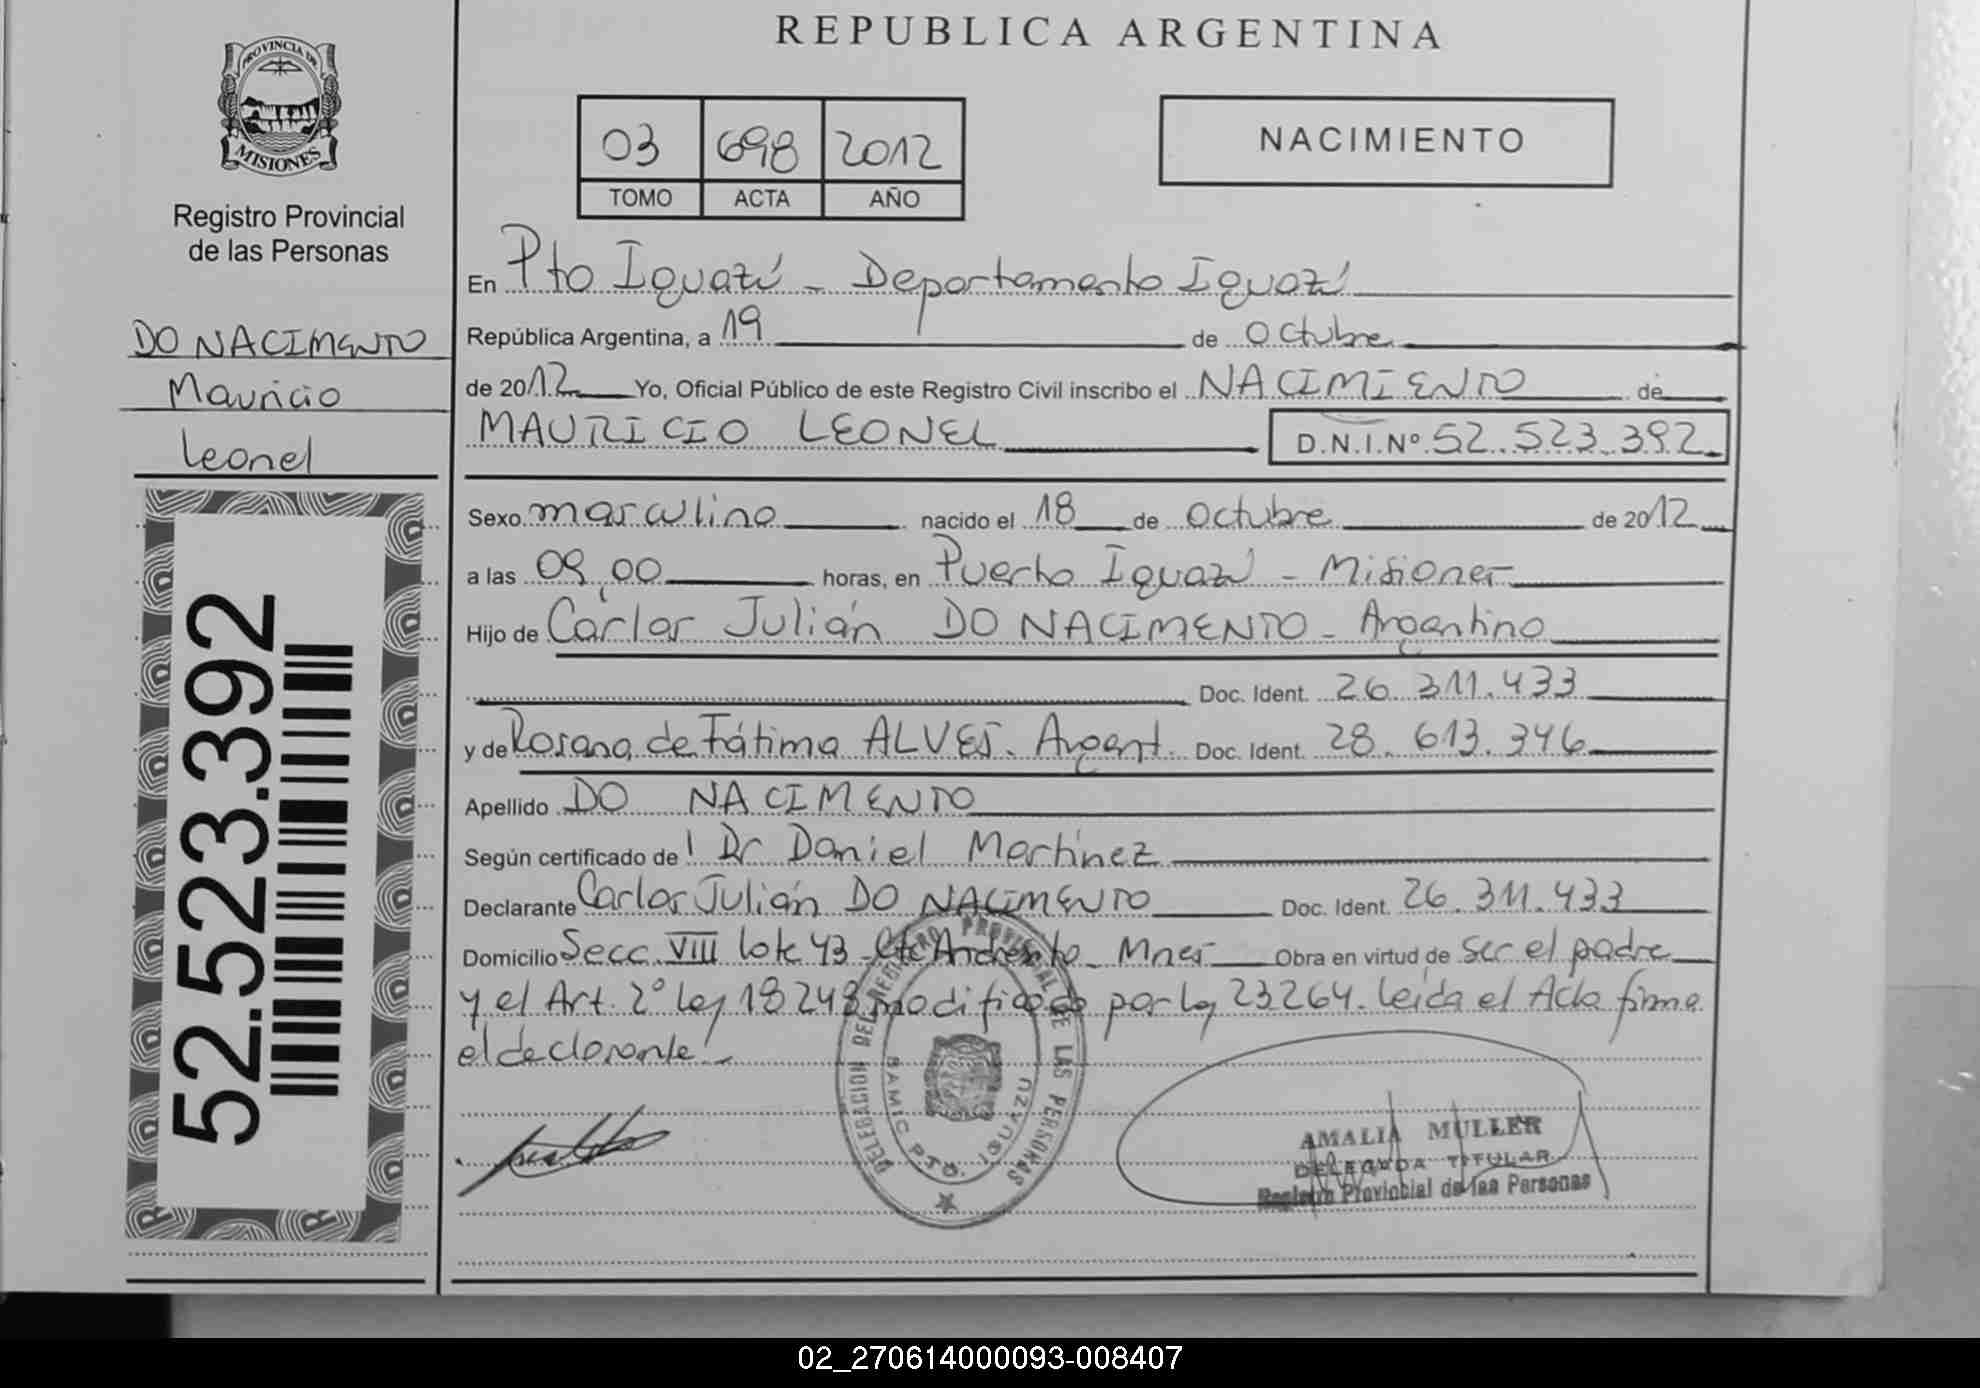 REPUBLICA ARGENTINA
PROVINCIA DE MISIONES
Registro Provincial
de las Personas
DO NACIMENTO
Mauricio
Leonel
52.523.392
03 698 2012
TOMO ACTA AÑO
NACIMIENTO
En Pto Iguazú - Departamento Iguazú
República Argentina, a 19 de Octubre
de 2012 Yo, Oficial Público de este Registro Civil inscribo el NACIMIENTO de
MAURICIO LEONEL D.N.I.Nº 52.523.392
Sexo masculino nacido el 18 de Octubre de 2012
a las 09,00 horas, en Puerto Iguazú - Misiones
Hijo de Carlos Julián DO NACIMENTO - Argentino
Doc. Ident. 26.311.433
y de Rosana de Fátima ALVES. Argent. Doc. Ident. 28.613.346
Apellido DO NACIMENTO
Según certificado de Dr Daniel Martínez
Declarante Carlos Julián DO NACIMENTO Doc. Ident. 26.311.433
Domicilio Secc. VIII lote 43 - Cte Andresito - Mnes Obra en virtud de ser el padre
y el Art. 2º Ley 18248 modificado por Ley 23264. Leída el Acta firma
el declarante
DELEGACION DEL REGISTRO PROVINCIAL DE LAS PERSONAS
PTO. IGUAZU
AMALIA MULLER
DELEGADA TITULAR
Registro Provincial de las Personas
02_270614000093-008407